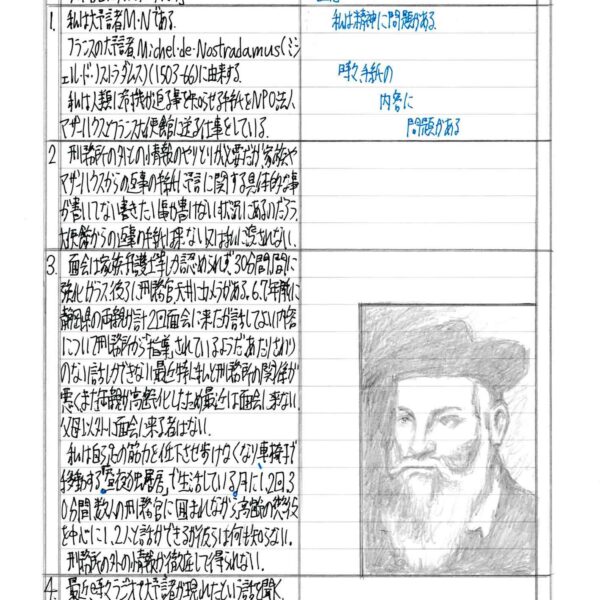 1. 私は大予言者M・Nである。
フランスの大予言者、Michel・de・Nostradamus(ミシ
ェル・ド・ノストラダムス)(1503-66)に由来する。
私は人類に危機が迫る事を知らせる手紙をNPO法人、
マザーハウスとフランス大使館に送る仕事をしている。
私は精神に問題がある。
時々手紙の
内容に
問題がある
2 刑務所の外との情報のやりとりが必要だが家族や
マザーハウスからの返事の手紙に予言に関する具体的な事
が書いてない書きたい事が書けない状況にあるのだろう。
大使館からの返事の手紙は来ない又は私に渡されない。
3. 面会は家族、弁護士等しか認められず、30分間、間に
強化ガラス、後ろに刑務官、天井にカメラがある。6.7年前に
静岡県の両親が計2回面会に来たが話してよい内容
について刑務所から指導されているようだあたりさわり
のない話しかできない最近特に私と刑務所の関係が
悪くまた両親が高齢化したため最近は面会に来ない。
父母以外に面会に来た者はない。
私は自らの筋力を低下させ歩けなくなり車椅子で
移動する。昼夜独居房で生活している。月に1,2回、3
0分間、数人の刑務官に囲まれながら高齢の懲役
を中心に1,2人と話ができるが彼らは何も知らない。
刑務所の外の情報が徹底して得られない。
4. 最近時々ラジオで大予言者が現れたという話を聞く。